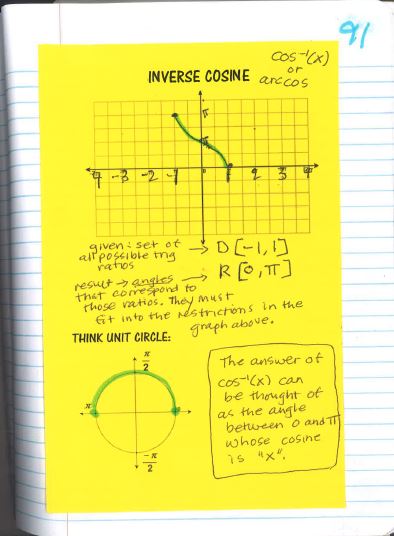 91
cos⁻¹(x)
or
INVERSE COSINE arccos
π
π/2
-4 -3 -2 -1 1 2 3 4
given: set of → D [-1,1]
all possible trig
ratios
R [0,π]
result → angles →
that correspond to
those ratios. They must
fit into the restrictions in the
graph above.
THINK UNIT CIRCLE:
π/2
π
-π/2
The answer of
cos⁻¹(x) can
be thought of
as the angle
between 0 and π
whose cosine
is "x".